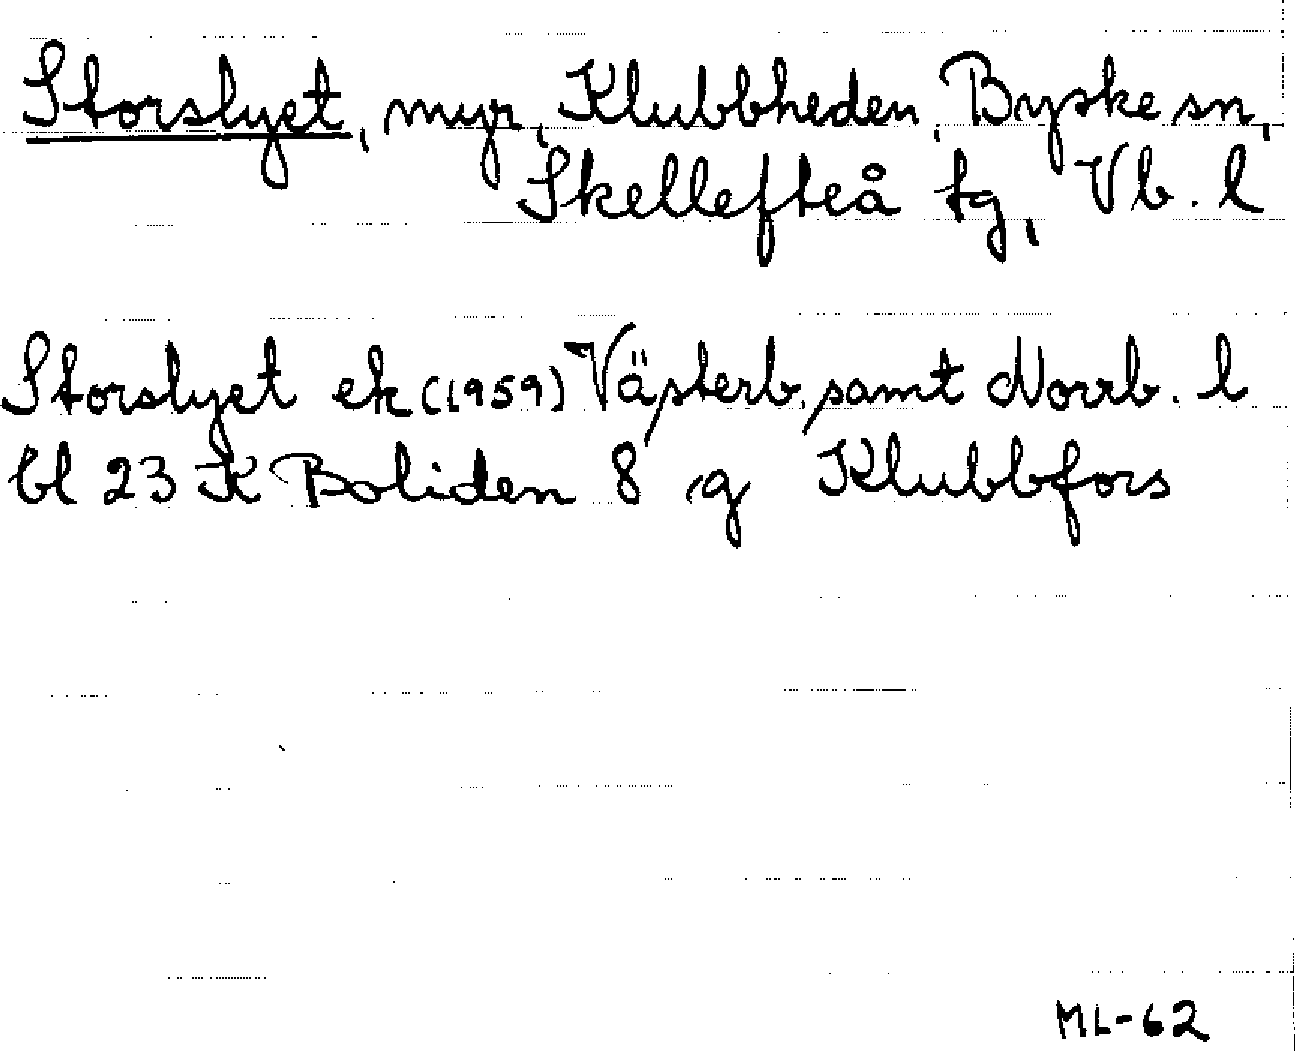 Storslyet, myr, Klubbheden, Byske sn,
Skellefteå tg, Vb. l
Storslyet ek (1959) Västerb. samt Norrb. l
bl 23 K Boliden 8 g Klubbfors
ML-62